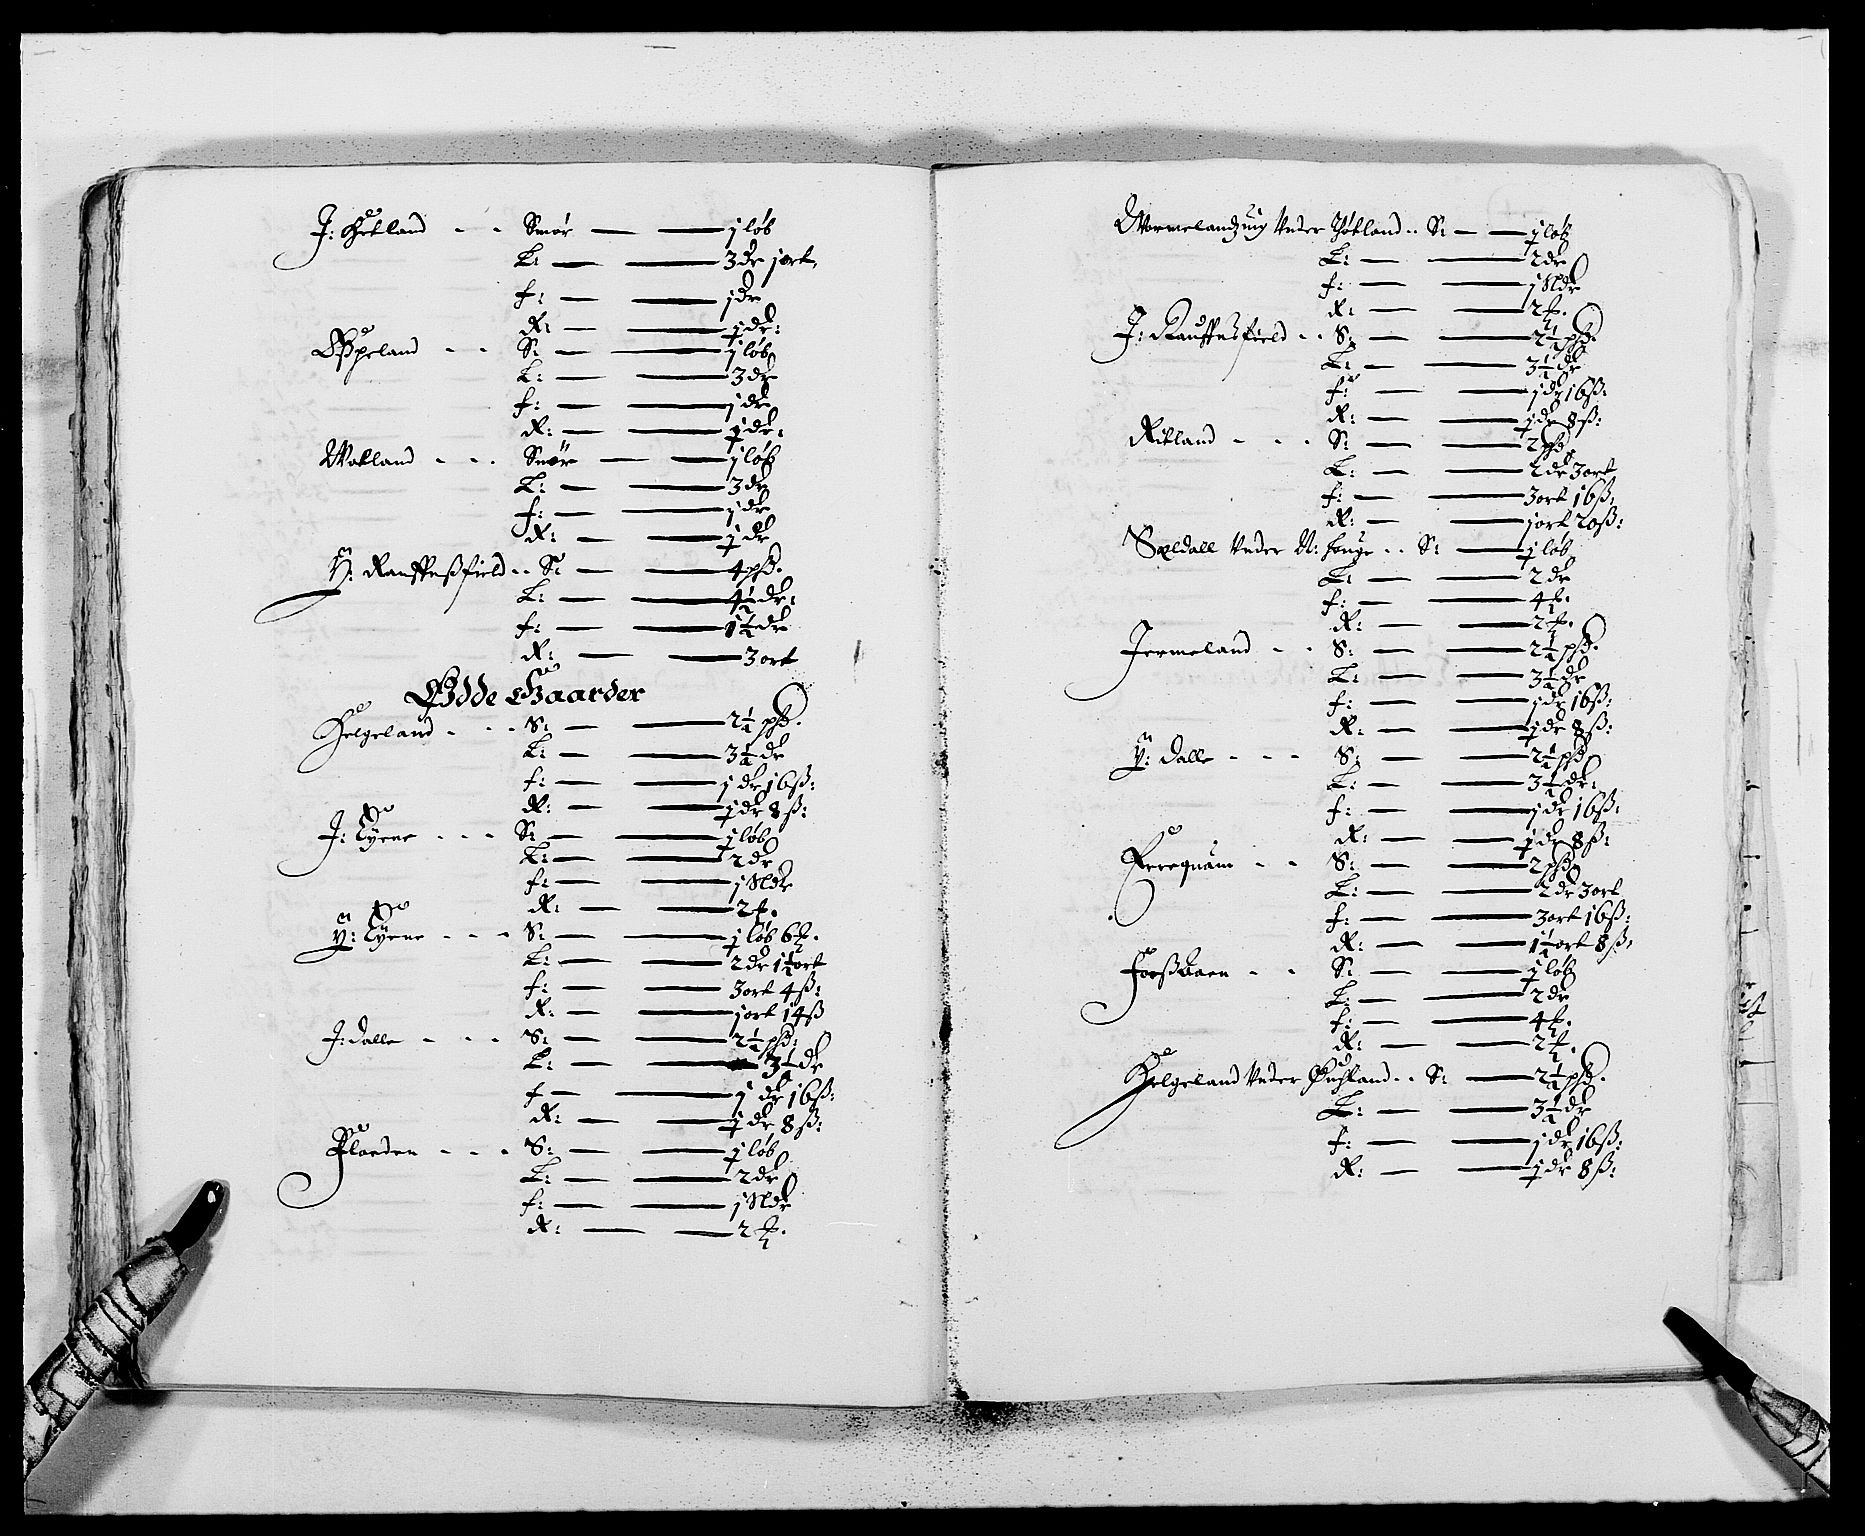 J: Hetland - - Smør — — j løb
L: — — 3 dr j ort
f: — — j dr
R: — — ½ dr:
Opeland - - S: — — ½ løb
L: — — 3 dr
f: — — j dr
R: — — ½ dr:
Watland - - - Smør — — ½ løb
L: — — 3 dr
f: — — j dr
R: — — ½ dr
Ÿ: Rauffnßfield - - S: — — 4 pß.
L: — — 4½ dr:
f: — — 1½ dr
R: — — 3 ort
Ødde Gaarder
Helgeland - - - S: — — 2½ pß.
L: — — 3½ dr
f: — — j dr 16 ß:
R: — — ½ dr 8 ß:
J: Tÿene - - - S: — — ½ løb
L: — — 2 dr
f: — — j Sldr
R: — — 2 ₤.
Ÿ: Tÿene - - - S: — — ½ løb 6 ₤.
L: — — 2 dr 1½ ort
f: — — 3 ort 4 ß:
R: — — j ort 14 ß
J: Dalle - - - S: — — 2½ pß:
L: — — 3½ dr
f — — j dr 16 ß:
R: — — ½ dr 8 ß:
Floeden - - - S: — — ½ løb
L: — — 2 dr
f: — — j Sldr
R: — — 2 ₤.
Wormelandz Under - - S: — — ½ løb
L: — — 2 dr
f: — — j Sldr
R: — — 2 ₤.
J: Rauffnßfield - - S: — — 2½ pß.
L: — — 3½ dr
f: — — j dr 16 ß:
R: — — ½ dr 8 ß:
Ritland - - - S: — — 2 pß
L: — — 2 dr 3 ort
f: — — 3 ort 16 ß:
R: — — j ort 20 ß:
Sældall Under N: - - S: — — ½ løb
L: — — 2 dr
f: — — 4 ₤.
R: — — 2 ₤.
Jermeland - - S: — — 2½ pß.
L: — — 3½ dr
f: — — j dr 16 ß:
R: — — ½ dr 8 ß:
Ÿ: Dalle - - - S: — — 2½ pß
L: — — 3½ dr:
f: — — j dr 16 ß:
R: — — ½ dr 8 ß:
Erreqnám - - S: — — 2 pß
L: — — 2 dr 3 ort
f: — — 3 ort 16 ß:
R: — — 1½ ort 8 ß:
Forßbaen - - S: — — ½ løb
L: — — 2 dr
f: — — 4 ₤.
R: — — 2 ₤.
Helgeland Under - - S: — — 2½ pß.
L: — — 3½ dr
f: — — j dr 16 ß:
R: — — ½ dr 8 ß: